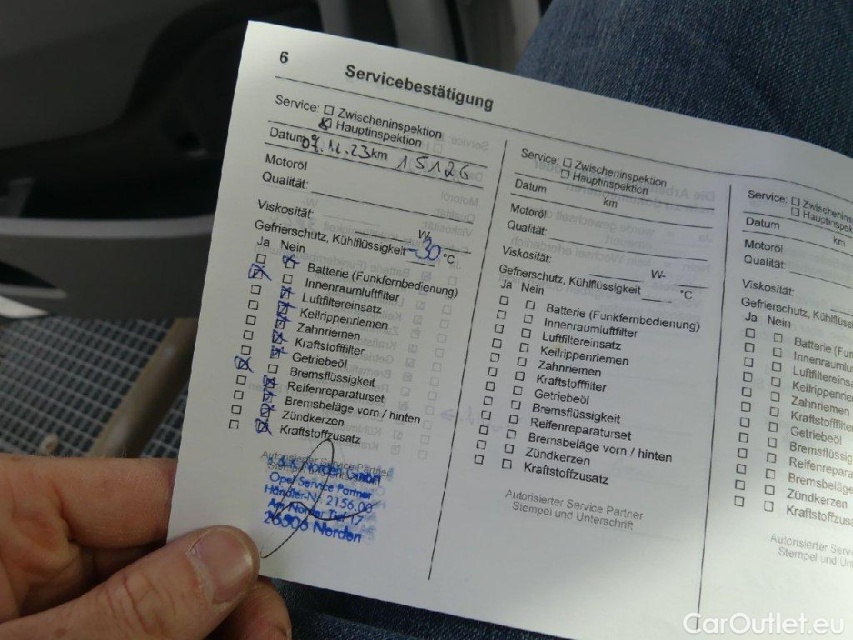 6
Servicebestätigung
Service: Zwischeninspektion
Hauptinspektion
Datum 07.12.23 km 15126
Motoröl
Qualität:
Viskosität: W-
Gefrierschutz, Kühlflüssigkeit -30 °C
Ja Nein
Batterie (Funkfernbedienung)
Innenraumluftfilter
Luftfiltereinsatz
Keilrippenriemen
Zahnriemen
Kraftstofffilter
Getriebeöl
Bremsflüssigkeit
Reifenreparaturset
Bremsbeläge vorn / hinten
Zündkerzen
Kraftstoffzusatz
Autorisierter Service Partner
Norden GmbH
Opel Service Partner
Händler-Nr. 2156.00
Am Norder Tief 17
26506 Norden
Service: Zwischeninspektion
Hauptinspektion
Datum km
Motoröl
Qualität:
Viskosität: W-
Gefrierschutz, Kühlflüssigkeit °C
Ja Nein
Batterie (Funkfernbedienung)
Innenraumluftfilter
Luftfiltereinsatz
Keilrippenriemen
Zahnriemen
Kraftstofffilter
Getriebeöl
Bremsflüssigkeit
Reifenreparaturset
Bremsbeläge vorn / hinten
Zündkerzen
Kraftstoffzusatz
Autorisierter Service Partner
Stempel und Unterschrift
Service: Zwischeninsp
Hauptinspek
Datum km
Motoröl
Qualität:
Viskosität:
Gefrierschutz, Kühlflüss
Ja Nein
Batterie (Funk
Innenraumlu
Luftfiltereins
Keilrippenrie
Zahnriemen
Kraftstofffilt
Getriebeöl
Bremsflüssi
Reifenrepara
Bremsbeläge
Zündkerzen
Kraftstoffzus
Autorisierter Servi
Stempel und Unters
CarOutlet.eu